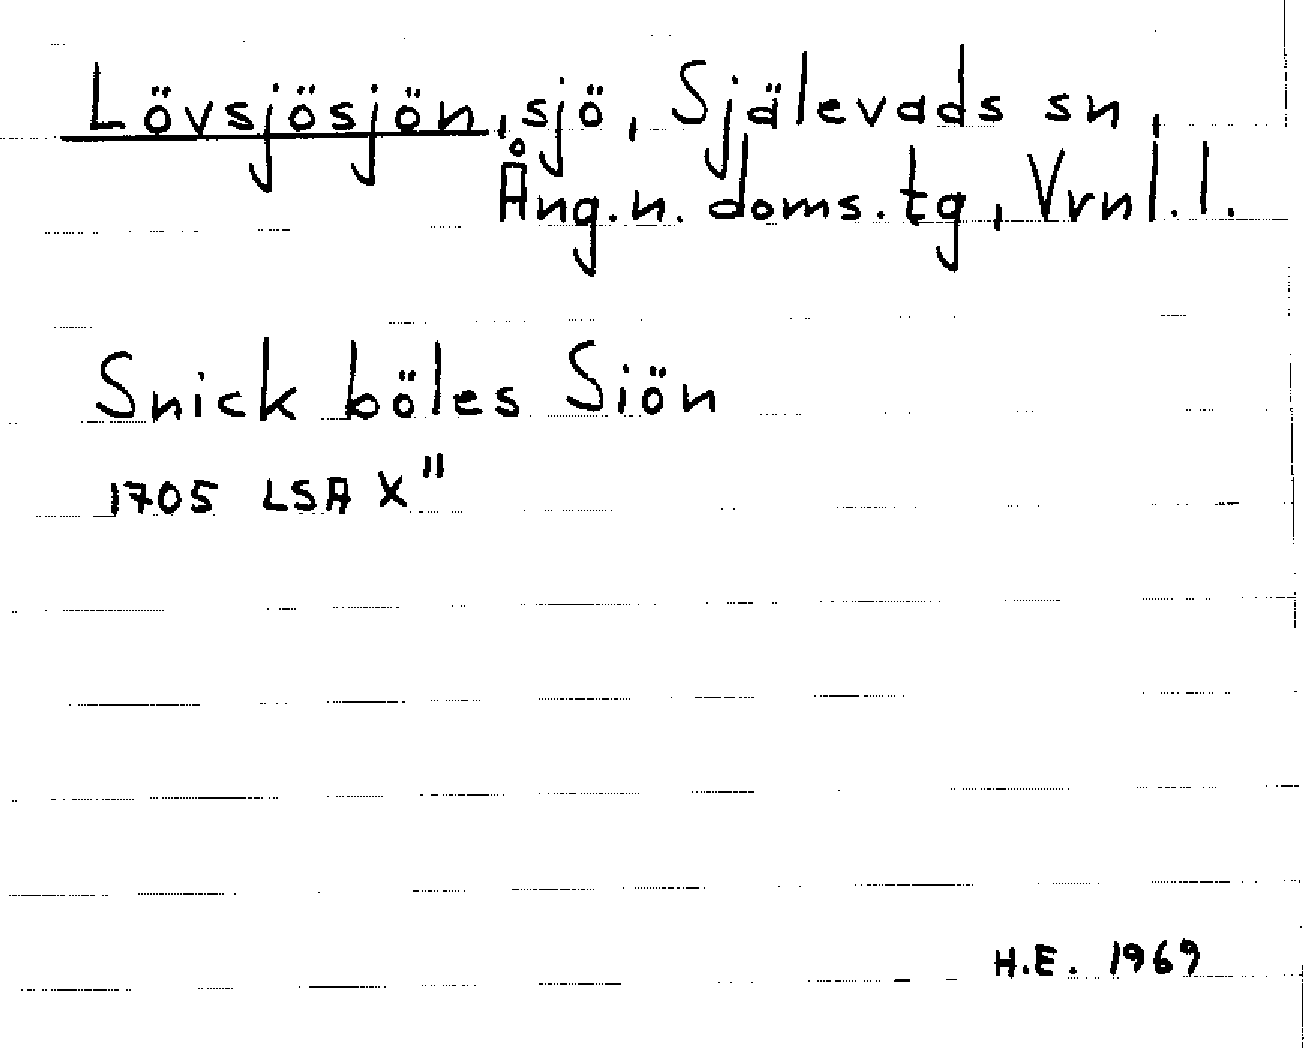 Lövsjösjön, sjö, Själevads sn,
Ång.n. doms.tg, Vrnl.l.
Snick böles Siön
1705 LSA X"
H.E. 1969